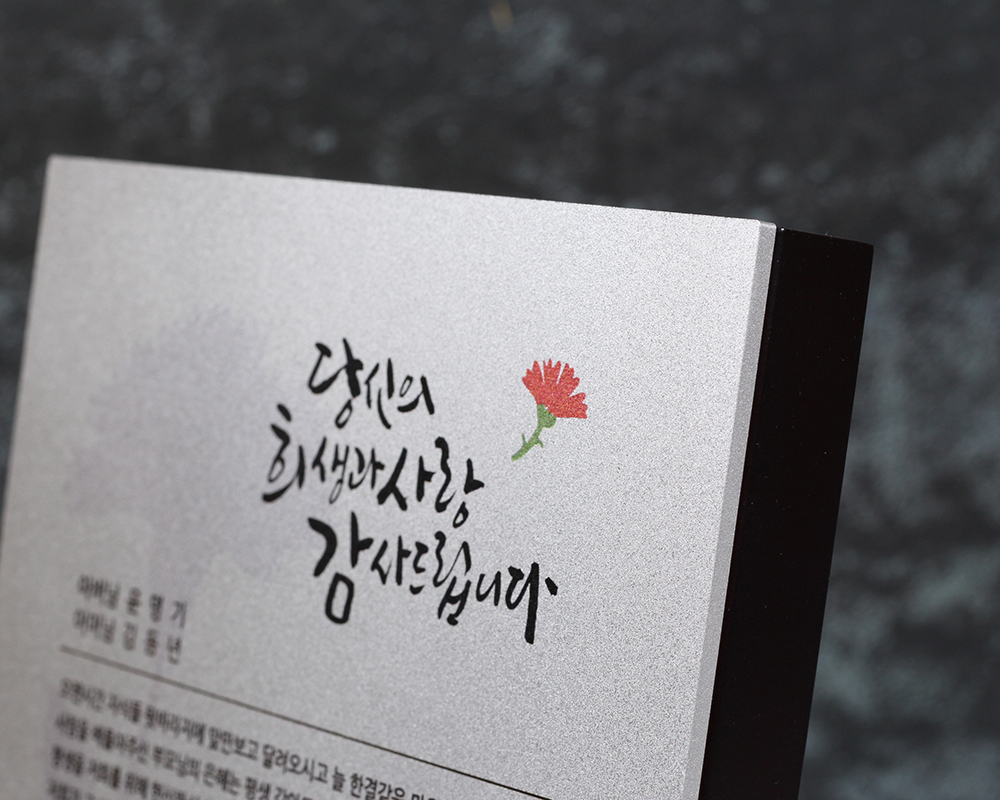 당신의
희생과 사랑
감사드립니다.
아버님 윤 명 기
어머님 김 동 년
오랜시간 자식들 뒷바라지에 앞만보고 달려오시고 늘 한결같은
사랑을 베풀어주신 부모님의 은혜는 평생
평생을 저희를 위해